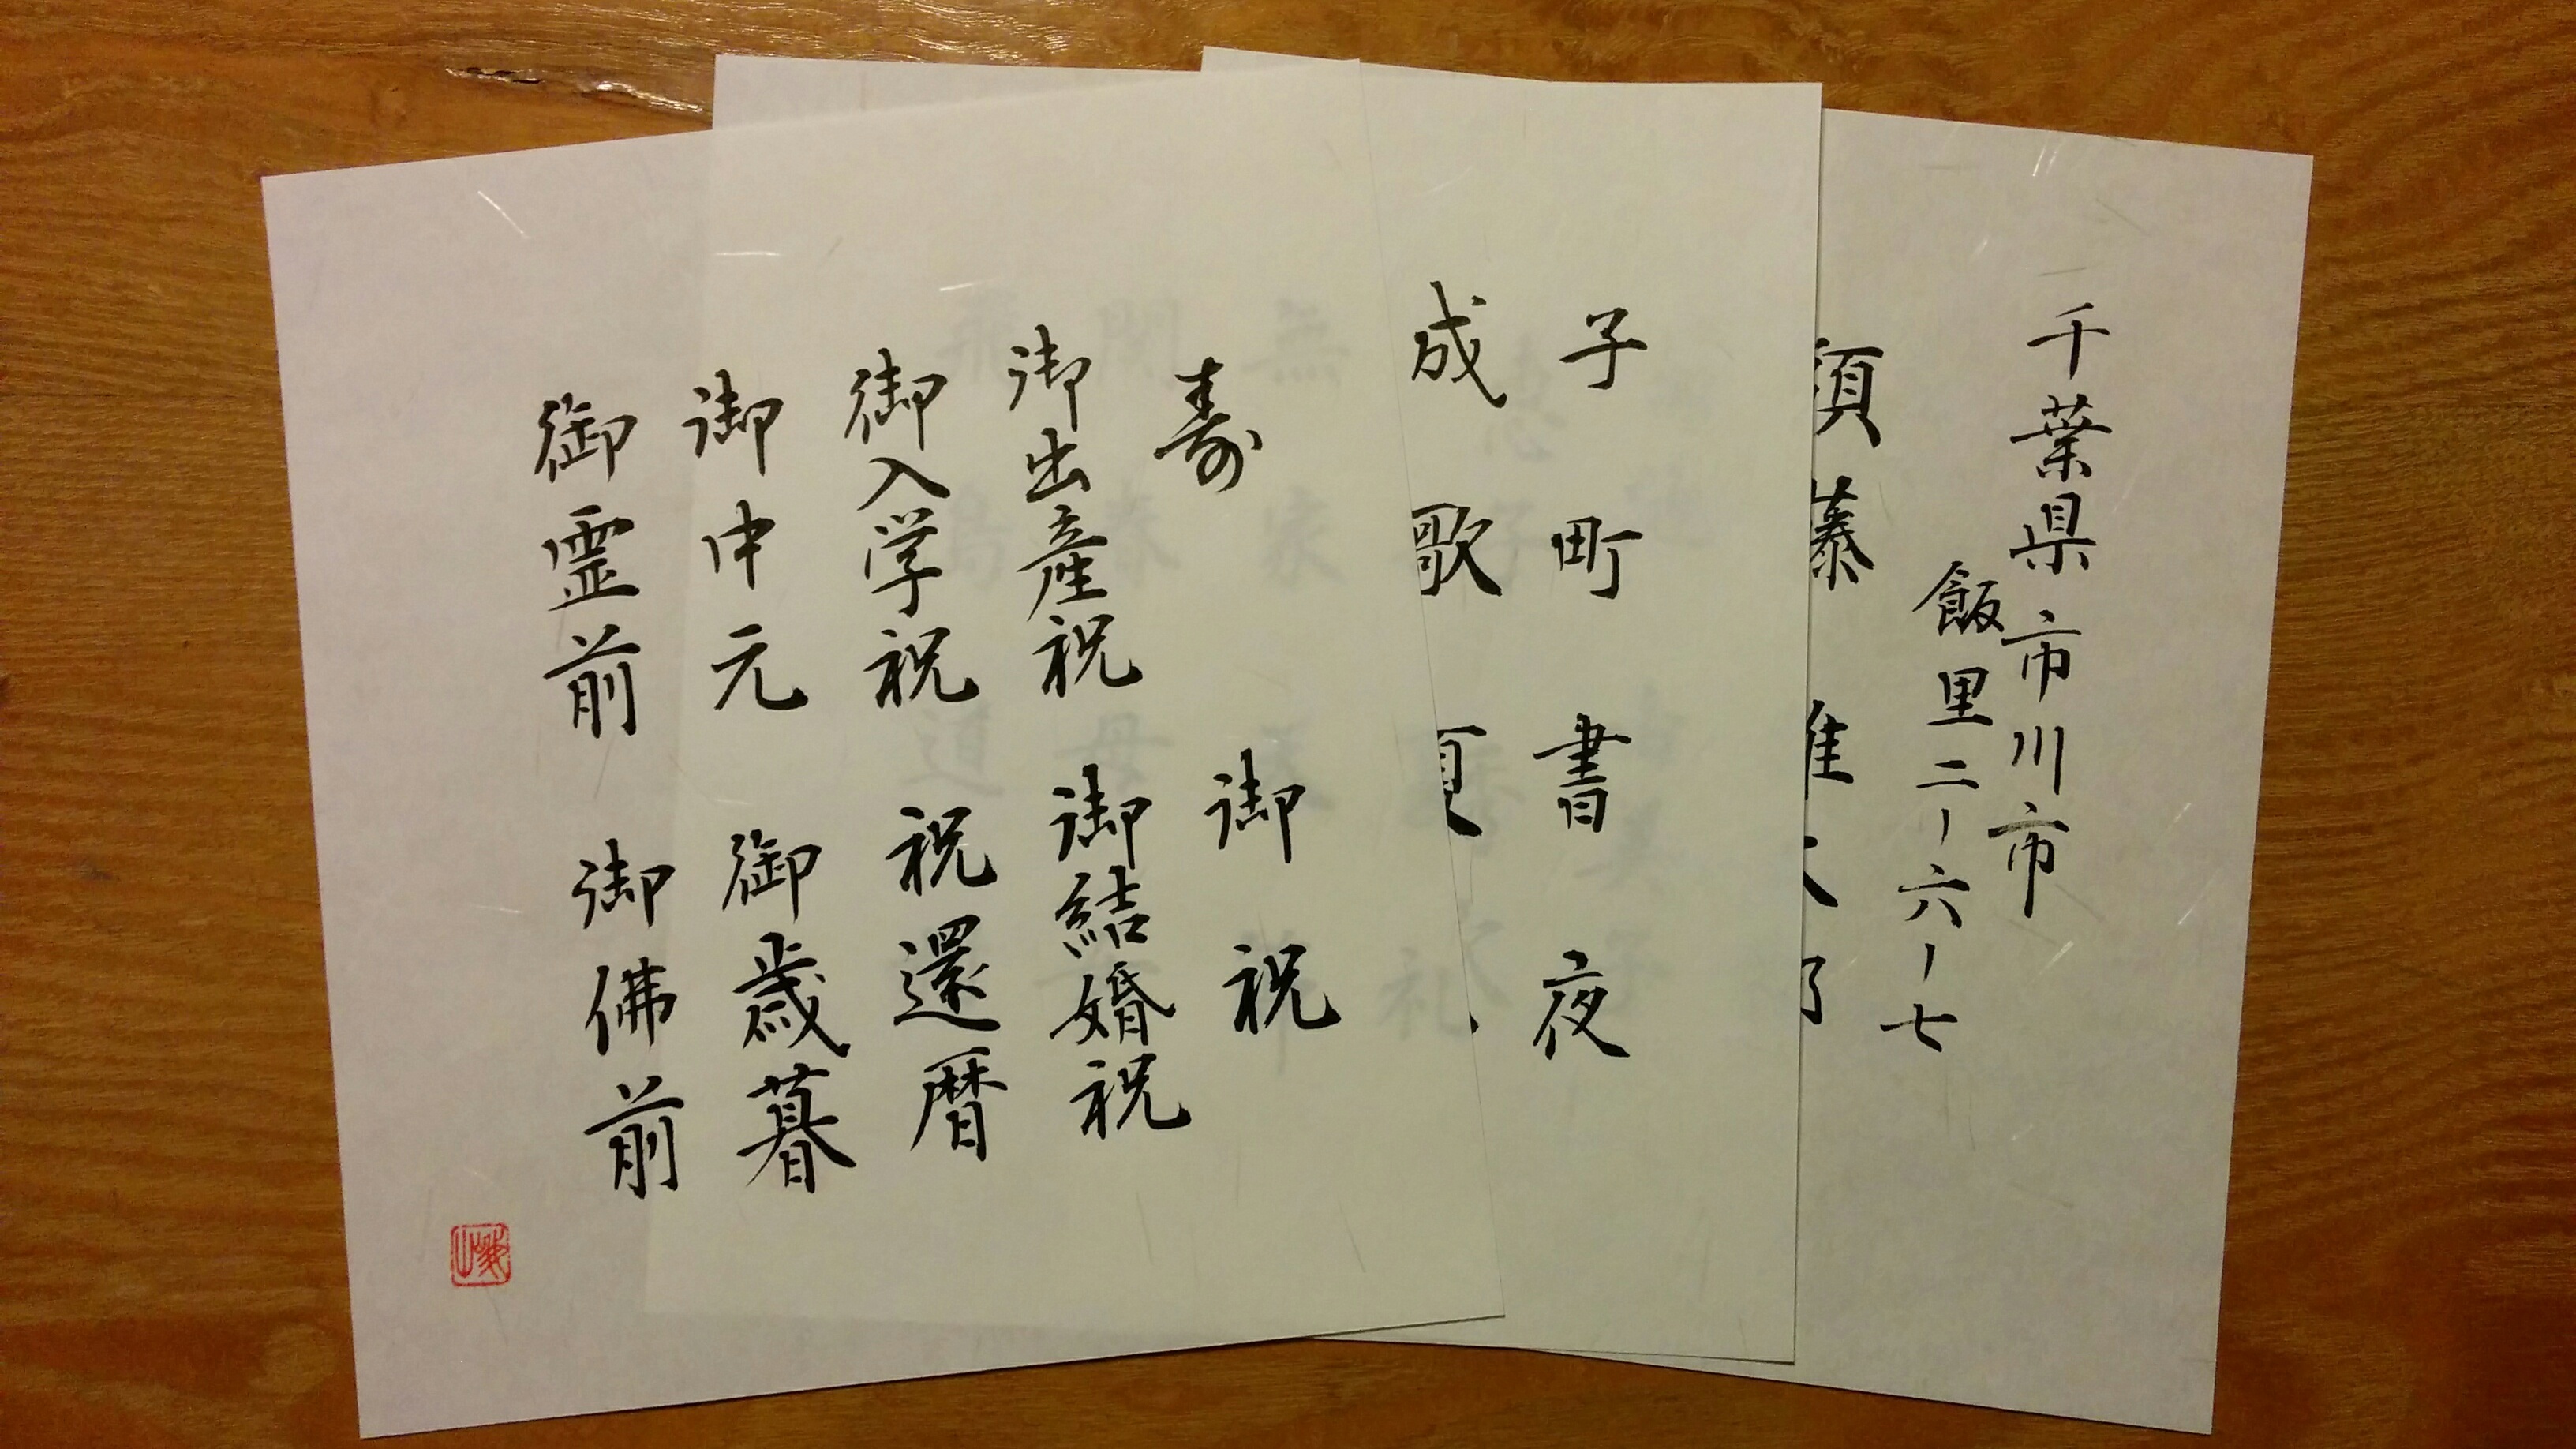 千葉県市川市
飯里二ー六ー七
須藤
子町書夜
成歌
寿 御祝
御出産祝 御結婚祝
御入学祝 祝還暦
御中元 御歳暮
御霊前 御佛前